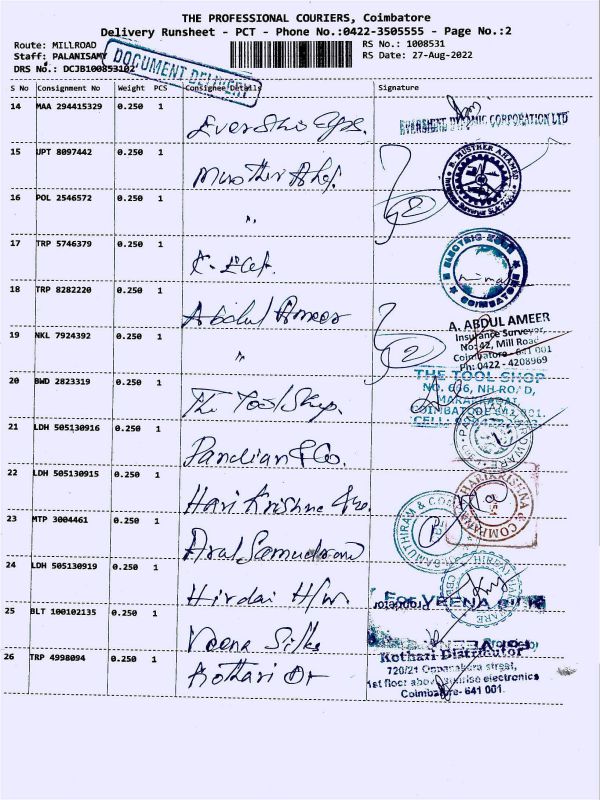 THE PROFESSIONAL COURIERS, Coimbatore
Delivery Runsheet - PCT - Phone No.:0422-3505555 - Page No.:2
Route: MILLROAD RS No.: 1008531
Staff: PALANISAMY RS Date: 27-Aug-2022
DRS No.: DCJB100853102
DOCUMENT DELIVERY
S No Consignment No Weight PCS Consignee Details Signature
14 MAA 294415329 0.250 1
EVERSHINE DYNAMIC CORPORATION LTD
15 UPT 8097442 0.250 1 Musther Ahd.
16 POL 2546572 0.250 1 "
2
17 TRP 5746379 0.250 1
COIMBATORE
18 TRP 8282220 0.250 1 Abdul Ameer
A. ABDUL AMEER
Insurance Surveyor,
No: 42, Mill Road
Coimbatore - 641 001
Ph: 0422 - 4208969
19 NKL 7924392 0.250 1 "
2
20 BWD 2823319 0.250 1 The Tool Shop.
THE TOOL SHOP
NO. 666, NH ROAD,
21 LDH 505130916 0.250 1 Pandian & Co.
22 LDH 505130915 0.250 1 Hari Krishna &co.
23 MTP 3004461 0.250 1
24 LDH 505130919 0.250 1 Hirdai H/w.
25 BLT 100102135 0.250 1 Veena Silks
For VEENA SILKS
Proprietor
26 TRP 4998094 0.250 1 Kothari Dr
Kothari Distributor
720/21 Oppanakara street,
1st floor above sunrise electronics
Coimbatore- 641 001.